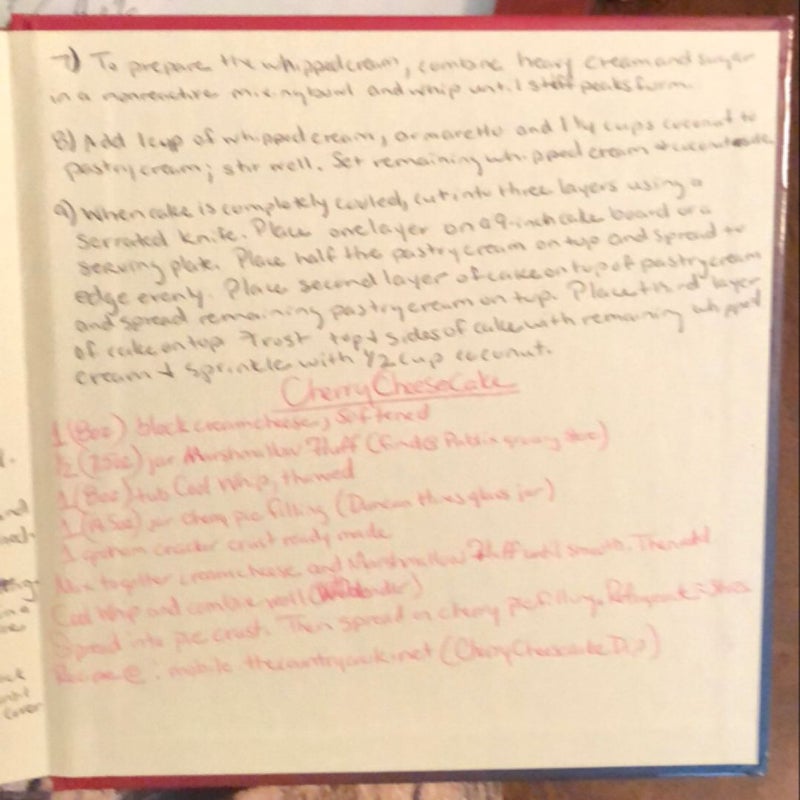 7) To prepare the whipped cream, combine heavy cream and sugar
in a nonreactive mixing bowl and whip until stiff peaks form.
8) Add 1 cup of whipped cream, amaretto and 1 1/4 cups coconut to
pastry cream; stir well. Set remaining whipped cream + coconut aside.
9) When cake is completely cooled, cut into three layers using a
serrated knife. Place one layer on a 9-inch cake board or a
serving plate. Place half the pastry cream on top and spread to
edge evenly. Place second layer of cake on top of pastry cream
and spread remaining pastry cream on top. Place third layer
of cake on top Frost top + sides of cake with remaining whipped
cream + sprinkle with 1/2 cup coconut.
Cherry CheeseCake
1 (8oz) block cream cheese, softened
1/2 (7.5oz) jar Marshmallow Fluff (in grocery store)
1 (8oz) tub Cool Whip, thawed
1 jar cherry pie filling (Duncan Hines glass jar)
1 graham cracker crust ready made
Mix together cream cheese and Marshmallow Fluff until smooth. Then add
Cool Whip and combine well
Spread into pie crust. Then spread on cherry pie filling.
Recipe @: mobile.thecountrycook.net (Cherry Cheesecake Dip)
nd
ing
cover